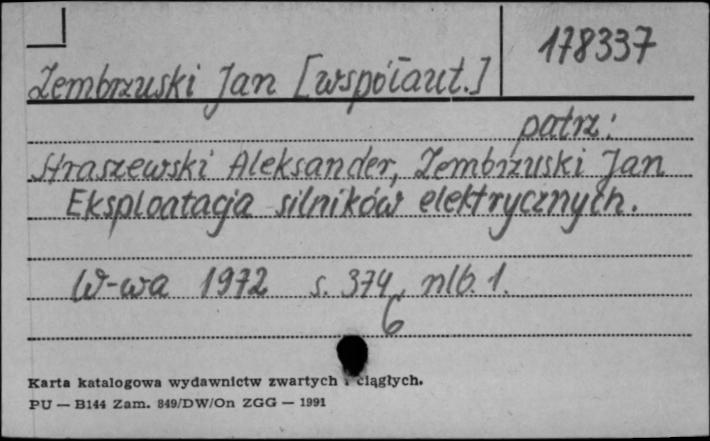 178337
Zembrzuski Jan [współaut.]
patrz:
Straszewski Aleksander, Zembrzuski Jan
Eksploatacja silników elektrycznych.
W-wa 1972 s. 374, nlb. 1.
6
Karta katalogowa wydawnictw zwartych i ciągłych.
PU — B144 Zam. 849/DW/On ZGG — 1991